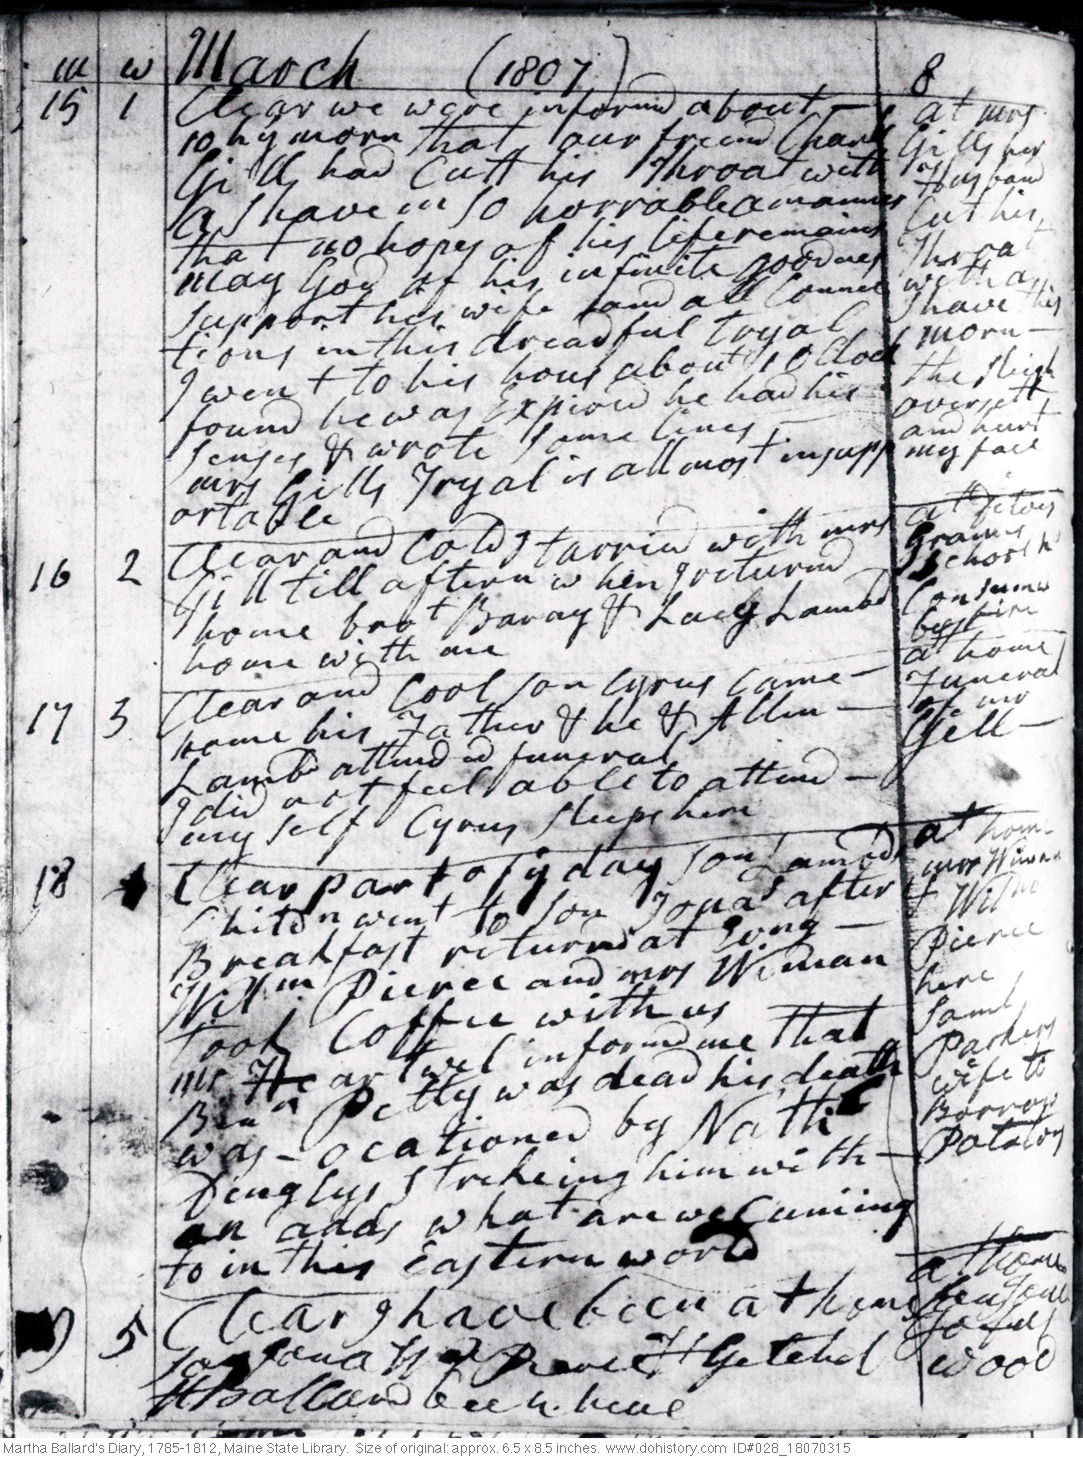 m w March (1807) 8
15 1 Clear we were informd about - at mrs
10 h y morn that our freind Charls Gills her
Gill had Cutt his Throat with husband
a shave in so horrable a manner Cut his
that no hopes of his life remains Throat
may God of his infinite goodnes with a
support his wife and all Connec shave this
tions in this dreadful tryal morn -
I went to his hous about 1 O Clock the sleigh
found he was Expird he had his oversett
senses & wrote some lines - and hurt
mrs Gills Tryal is allmost insupp my face
ortable
16 2 Clear and Cold I tarried with mrs at
Gill till aftern when I returnd School h
home brot & Lucy Lambd Consumd
home with me by fire
17 3 Clear and Cool son Cyrus Came - at home
home his Father & he & Allin - Funeral
Lambd attend d funeral of mr
I did not feel able to attend - Gill -
my self Cyrus sleeps here
18 4 Clear part of y day son Lambd at home
Childn went to son Jonas after mrs
Breakfast returnd at Evng - & Wilm
Willm Pierce and mrs Wiman Pierce
took Coffee with us here
mr Heartwel informd me that Saml
Benn Petty was dead his death Parkers
was - ocationed by Nath wife to
Duuglss strikeing him with - Borrow
an adds what are we Cuming Potatoes
to in this Eastern world
19 5 Clear I have been at home at home
Son Jona H Getchel
H Ballard been here wood
Martha Ballard's Diary, 1785-1812, Maine State Library. Size of original: approx. 6.5 x 8.5 inches. www.dohistory.com ID#028_18070315